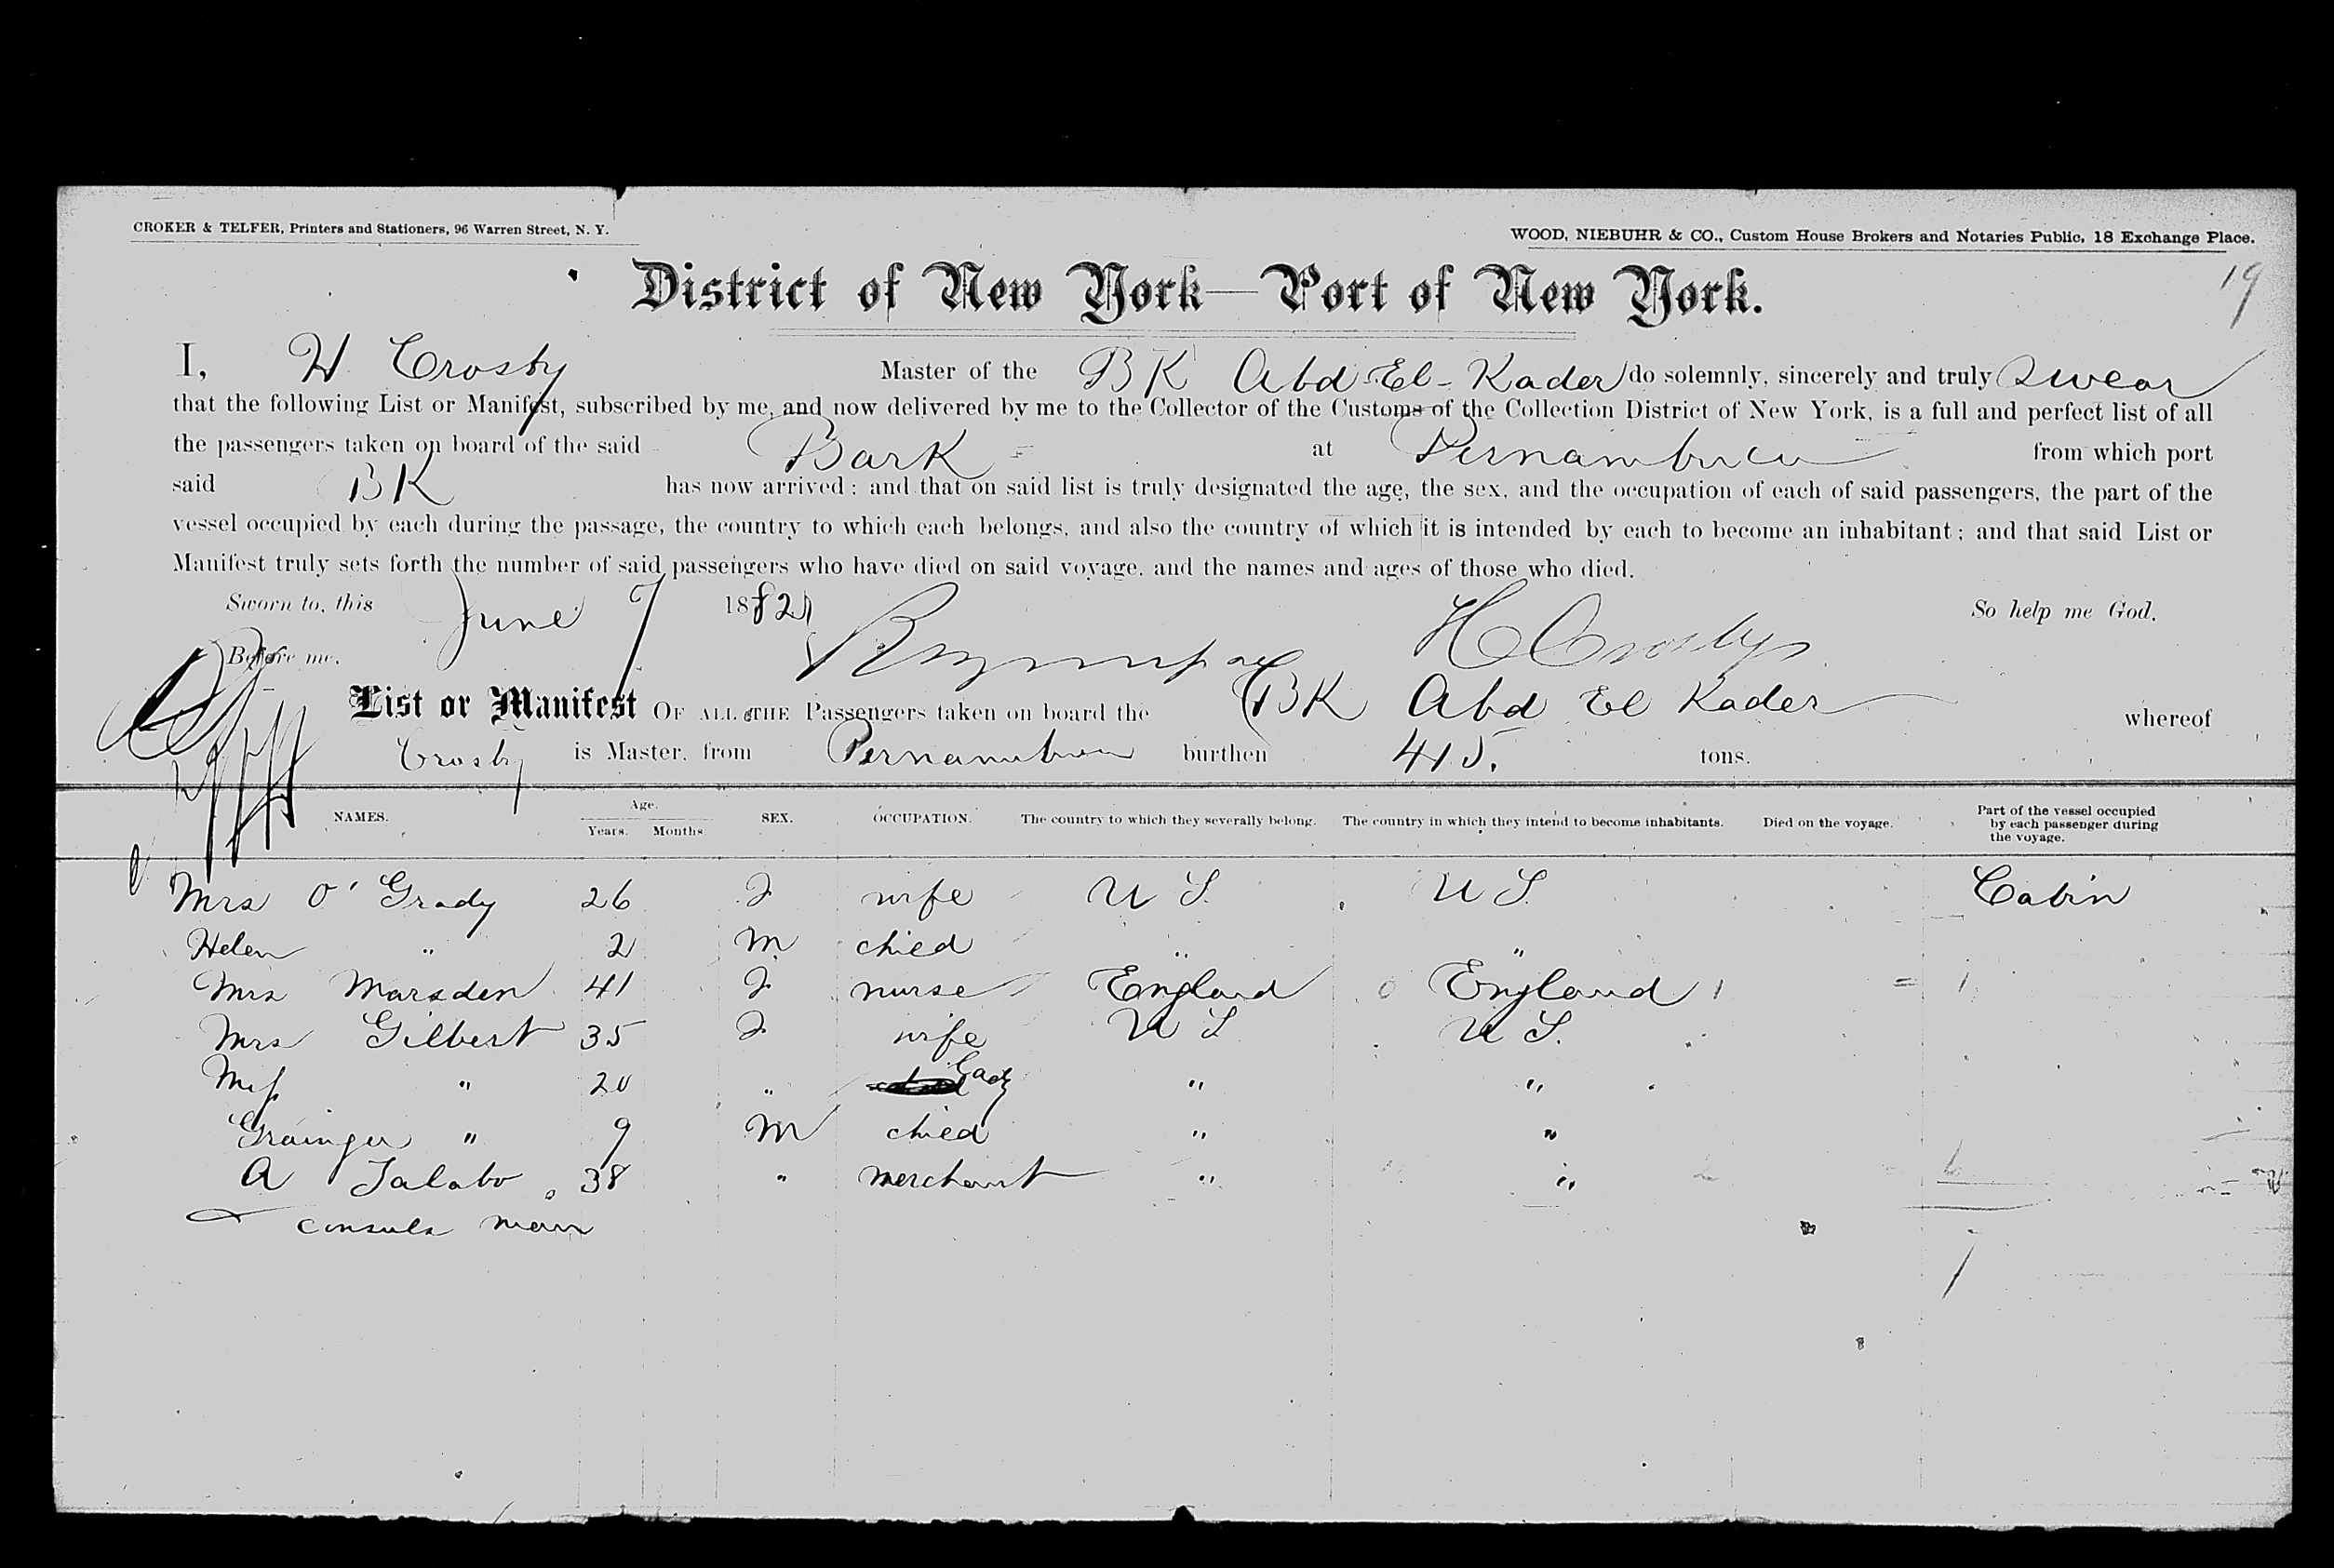 CROKER & TELFER, Printers and Stationers, 96 Warren Street, N. Y.
WOOD, NIEBUHR & CO., Custom House Brokers and Notaries Public, 18 Exchange Place.
19
District of New York—Port of New York.
I, H Crosby Master of the BK Abd El-Kader do solemnly, sincerely and truly swear
that the following List or Manifest, subscribed by me, and now delivered by me to the Collector of the Customs of the Collection District of New York, is a full and perfect list of all
the passengers taken on board of the said Bark at Pernambuco from which port
said BK has now arrived; and that on said list is truly designated the age, the sex, and the occupation of each of said passengers, the part of the
vessel occupied by each during the passage, the country to which each belongs, and also the country of which it is intended by each to become an inhabitant; and that said List or
Manifest truly sets forth the number of said passengers who have died on said voyage, and the names and ages of those who died.
Sworn to, this June 7 1882 So help me God,
Before me, H Crosby
List or Manifest OF ALL THE Passengers taken on board the BK Abd El Kader whereof
Crosby is Master, from Pernambuco burthen 415. tons.
NAMES. Age. Years. Months SEX. OCCUPATION. The country to which they severally belong. The country in which they intend to become inhabitants. Died on the voyage. Part of the vessel occupied by each passenger during the voyage.
Mrs O'Grady 26 F wife U S. U S. Cabin
Helen " 2 M child " "
Mrs Marsden 41 F nurse England England 1 = 1
Mrs Gilbert 35 F wife U S U S.
Miss " 20 " Lady " "
Grainger " 9 M child " "
A 38 " merchant " " 6
consuls man